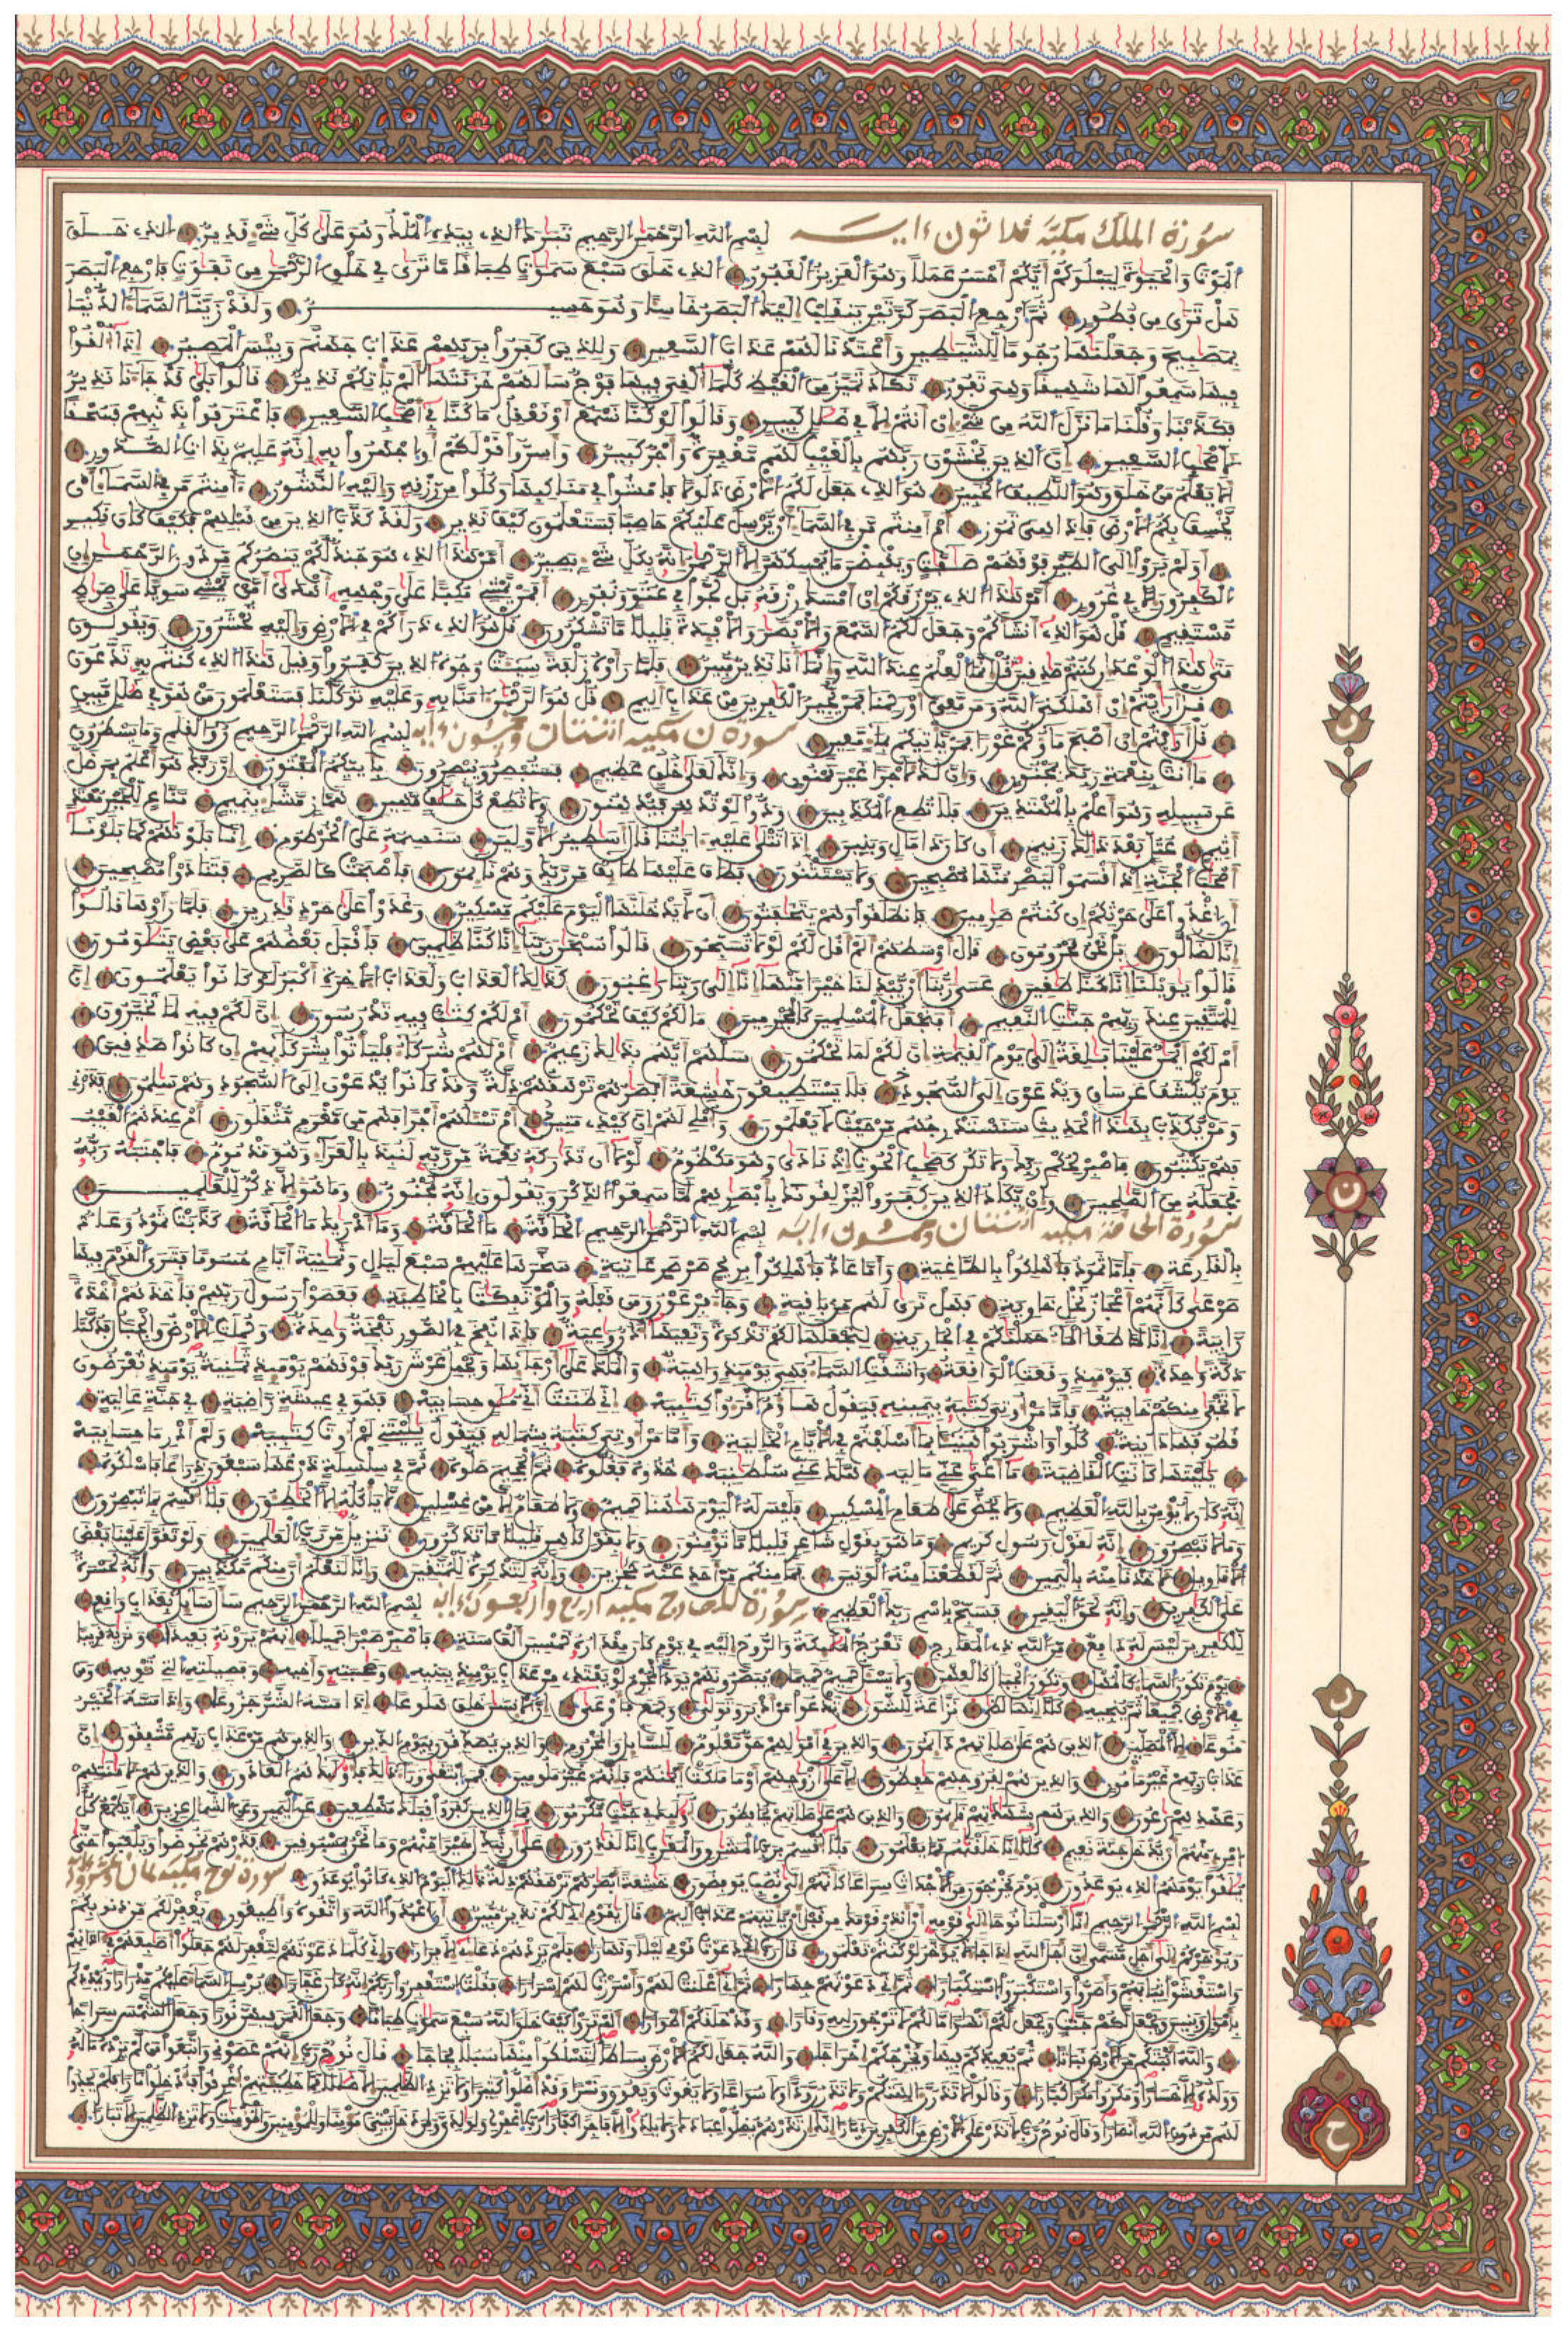 سورة الملك مكية ثلاثون ءاية بسم الله الرحمن الرحيم تبرك الذي بيده الملك وهو على كل شيء قدير الذي خلق
الموت والحيوة ليبلوكم أيكم أحسن عملا وهو العزيز الغفور الذي خلق سبع سموت طباقا ما ترى في خلق الرحمن من تفوت فارجع البصر
هل ترى من فطور ثم ارجع البصر كرتين ينقلب إليك البصر خاسئا وهو حسير ولقد زينا السماء الدنيا
بمصبيح وجعلنها رجوما للشيطين وأعتدنا لهم عذاب السعير وللذين كفروا بربهم عذاب جهنم وبئس المصير إذا ألقوا
فيها سمعوا لها شهيقا وهي تفور تكاد تميز من الغيظ كلما ألقي فيها فوج سألهم خزنتها ألم يأتكم نذير قالوا بلى قد جاءنا نذير
فكذبنا وقلنا ما نزل الله من شيء إن أنتم إلا في ضلل كبير وقالوا لو كنا نسمع أو نعقل ما كنا في أصحب السعير فاعترفوا بذنبهم فسحقا
لأصحب السعير إن الذين يخشون ربهم بالغيب لهم مغفرة وأجر كبير وأسروا قولكم أو اجهروا به إنه عليم بذات الصدور
ألا يعلم من خلق وهو اللطيف الخبير هو الذي جعل لكم الأرض ذلولا فامشوا في مناكبها وكلوا من رزقه وإليه النشور ءامنتم من في السماء أن
يخسف بكم الأرض فإذا هي تمور أم أمنتم من في السماء أن يرسل عليكم حاصبا فستعلمون كيف نذير ولقد كذب الذين من قبلهم فكيف كان نكير
أولم يروا إلى الطير فوقهم صفت ويقبضن ما يمسكهن إلا الرحمن إنه بكل شيء بصير أمن هذا الذي هو جند لكم ينصركم من دون الرحمن إن
الكفرون إلا في غرور أمن هذا الذي يرزقكم إن أمسك رزقه بل لجوا في عتو ونفور أفمن يمشي مكبا على وجهه أهدى أمن يمشي سويا على صرط
مستقيم قل هو الذي أنشأكم وجعل لكم السمع والأبصر والأفئدة قليلا ما تشكرون قل هو الذي ذرأكم في الأرض وإليه تحشرون ويقولون
متى هذا الوعد إن كنتم صدقين قل إنما العلم عند الله وإنما أنا نذير مبين فلما رأوه زلفة سيئت وجوه الذين كفروا وقيل هذا الذي كنتم به تدعون
قل أرأيتم إن أهلكني الله ومن معي أو رحمنا فمن يجير الكفرين من عذاب أليم قل هو الرحمن ءامنا به وعليه توكلنا فستعلمون من هو في ضلل مبين
قل أرأيتم إن أصبح ماؤكم غورا فمن يأتيكم بماء معين سورة ن مكية اثنتان وخمسون ءاية بسم الله الرحمن الرحيم ن والقلم وما يسطرون
ما أنت بنعمة ربك بمجنون وإن لك لأجرا غير ممنون وإنك لعلى خلق عظيم فستبصر ويبصرون بأييكم المفتون إن ربك هو أعلم بمن ضل
عن سبيله وهو أعلم بالمهتدين فلا تطع المكذبين ودوا لو تدهن فيدهنون ولا تطع كل حلاف مهين هماز مشاء بنميم مناع للخير معتد
أثيم عتل بعد ذلك زنيم أن كان ذا مال وبنين إذا تتلى عليه ءايتنا قال أسطير الأولين سنسمه على الخرطوم إنا بلونهم كما بلونا
أصحب الجنة إذ أقسموا ليصرمنها مصبحين ولا يستثنون فطاف عليها طائف من ربك وهم نائمون فأصبحت كالصريم فتنادوا مصبحين
أن اغدوا على حرثكم إن كنتم صرمين فانطلقوا وهم يتخفتون أن لا يدخلنها اليوم عليكم مسكين وغدوا على حرد قدرين فلما رأوها قالوا
إنا لضالون بل نحن محرومون قال أوسطهم ألم أقل لكم لولا تسبحون قالوا سبحن ربنا إنا كنا ظلمين فأقبل بعضهم على بعض يتلومون
قالوا يويلنا إنا كنا طغين عسى ربنا أن يبدلنا خيرا منها إنا إلى ربنا رغبون كذلك العذاب ولعذاب الآخرة أكبر لو كانوا يعلمون إن
للمتقين عند ربهم جنت النعيم أفنجعل المسلمين كالمجرمين ما لكم كيف تحكمون أم لكم كتب فيه تدرسون إن لكم فيه لما تخيرون
أم لكم أيمن علينا بلغة إلى يوم القيمة إن لكم لما تحكمون سلهم أيهم بذلك زعيم أم لهم شركاء فليأتوا بشركائهم إن كانوا صدقين
يوم يكشف عن ساق ويدعون إلى السجود فلا يستطيعون خشعة أبصرهم ترهقهم ذلة وقد كانوا يدعون إلى السجود وهم سلمون فذرني
ومن يكذب بهذا الحديث سنستدرجهم من حيث لا يعلمون وأملي لهم إن كيدي متين أم تسئلهم أجرا فهم من مغرم مثقلون أم عندهم الغيب
فهم يكتبون فاصبر لحكم ربك ولا تكن كصاحب الحوت إذ نادى وهو مكظوم لولا أن تدركه نعمة من ربه لنبذ بالعراء وهو مذموم فاجتبه ربه
فجعله من الصلحين وإن يكاد الذين كفروا ليزلقونك بأبصرهم لما سمعوا الذكر ويقولون إنه لمجنون وما هو إلا ذكر للعلمين
سورة الحاقة مكية اثنتان وخمسون ءاية بسم الله الرحمن الرحيم الحاقة ما الحاقة وما أدريك ما الحاقة كذبت ثمود وعاد
بالقارعة فأما ثمود فأهلكوا بالطاغية وأما عاد فأهلكوا بريح صرصر عاتية سخرها عليهم سبع ليال وثمنية أيام حسوما فترى القوم فيها
صرعى كأنهم أعجاز نخل خاوية فهل ترى لهم من باقية وجاء فرعون ومن قبله والمؤتفكت بالخاطئة فعصوا رسول ربهم فأخذهم أخذة
رابية إنا لما طغا الماء حملنكم في الجارية لنجعلها لكم تذكرة وتعيها أذن وعية فإذا نفخ في الصور نفخة وحدة وحملت الأرض والجبال فدكتا
دكة وحدة فيومئذ وقعت الواقعة وانشقت السماء فهي يومئذ واهية والملك على أرجائها ويحمل عرش ربك فوقهم يومئذ ثمنية يومئذ تعرضون
لا تخفى منكم خافية فأما من أوتي كتبه بيمينه فيقول هاؤم اقرءوا كتبيه إني ظننت أني ملق حسابيه فهو في عيشة راضية في جنة عالية
قطوفها دانية كلوا واشربوا هنيئا بما أسلفتم في الأيام الخالية وأما من أوتي كتبه بشماله فيقول يليتني لم أوت كتبيه ولم أدر ما حسابيه
يليتها كانت القاضية ما أغنى عني ماليه هلك عني سلطنيه خذوه فغلوه ثم الجحيم صلوه ثم في سلسلة ذرعها سبعون ذراعا فاسلكوه
إنه كان لا يؤمن بالله العظيم ولا يحض على طعام المسكين فليس له اليوم ههنا حميم ولا طعام إلا من غسلين لا يأكله إلا الخطئون فلا أقسم بما تبصرون
وما لا تبصرون إنه لقول رسول كريم وما هو بقول شاعر قليلا ما تؤمنون ولا بقول كاهن قليلا ما تذكرون تنزيل من رب العلمين ولو تقول علينا بعض
الأقاويل لأخذنا منه باليمين ثم لقطعنا منه الوتين فما منكم من أحد عنه حجزين وإنه لتذكرة للمتقين وإنا لنعلم أن منكم مكذبين وإنه لحسرة
على الكفرين وإنه لحق اليقين فسبح باسم ربك العظيم سورة المعارج مكية أربع وأربعون ءاية بسم الله الرحمن الرحيم سال سائل بعذاب واقع
للكفرين ليس له دافع من الله ذي المعارج تعرج الملئكة والروح إليه في يوم كان مقداره خمسين ألف سنة فاصبر صبرا جميلا إنهم يرونه بعيدا ونريه قريبا
يوم تكون السماء كالمهل وتكون الجبال كالعهن ولا يسئل حميم حميما يبصرونهم يود المجرم لو يفتدي من عذاب يومئذ ببنيه وصحبته وأخيه وفصيلته التي تئويه ومن
في الأرض جميعا ثم ينجيه كلا إنها لظى نزاعة للشوى تدعوا من أدبر وتولى وجمع فأوعى إن الإنسن خلق هلوعا إذا مسه الشر جزوعا وإذا مسه الخير
منوعا إلا المصلين الذين هم على صلاتهم دائمون والذين في أمولهم حق معلوم للسائل والمحروم والذين يصدقون بيوم الدين والذين هم من عذاب ربهم مشفقون إن
عذاب ربهم غير مأمون والذين هم لفروجهم حفظون إلا على أزوجهم أو ما ملكت أيمنهم فإنهم غير ملومين فمن ابتغى وراء ذلك فأولئك هم العادون والذين هم لأمنتهم
وعهدهم رعون والذين هم بشهدتهم قائمون والذين هم على صلاتهم يحافظون أولئك في جنت مكرمون فمال الذين كفروا قبلك مهطعين عن اليمين وعن الشمال عزين أيطمع كل
امرئ منهم أن يدخل جنة نعيم كلا إنا خلقنهم مما يعلمون فلا أقسم برب المشرق والمغرب إنا لقدرون على أن نبدل خيرا منهم وما نحن بمسبوقين فذرهم يخوضوا ويلعبوا حتى
يلقوا يومهم الذي يوعدون يوم يخرجون من الأجداث سراعا كأنهم إلى نصب يوفضون خشعة أبصرهم ترهقهم ذلة ذلك اليوم الذي كانوا يوعدون سورة نوح مكية ثمان وعشرون ءاية
بسم الله الرحمن الرحيم إنا أرسلنا نوحا إلى قومه أن أنذر قومك من قبل أن يأتيهم عذاب أليم قال يقوم إني لكم نذير مبين أن اعبدوا الله واتقوه وأطيعون يغفر لكم من ذنوبكم
ويؤخركم إلى أجل مسمى إن أجل الله إذا جاء لا يؤخر لو كنتم تعلمون قال رب إني دعوت قومي ليلا ونهارا فلم يزدهم دعاءي إلا فرارا وإني كلما دعوتهم لتغفر لهم جعلوا أصبعهم في ءاذانهم
واستغشوا ثيابهم وأصروا واستكبروا استكبارا ثم إني دعوتهم جهارا ثم إني أعلنت لهم وأسررت لهم إسرارا فقلت استغفروا ربكم إنه كان غفارا يرسل السماء عليكم مدرارا ويمددكم
بأمول وبنين ويجعل لكم جنت ويجعل لكم أنهرا ما لكم لا ترجون لله وقارا وقد خلقكم أطوارا ألم تروا كيف خلق الله سبع سموت طباقا وجعل القمر فيهن نورا وجعل الشمس سراجا
والله أنبتكم من الأرض نباتا ثم يعيدكم فيها ويخرجكم إخراجا والله جعل لكم الأرض بساطا لتسلكوا منها سبلا فجاجا قال نوح رب إنهم عصوني واتبعوا من لم يزده ماله
وولده إلا خسارا ومكروا مكرا كبارا وقالوا لا تذرن ءالهتكم ولا تذرن ودا ولا سواعا ولا يغوث ويعوق ونسرا وقد أضلوا كثيرا ولا تزد الظلمين إلا ضللا مما خطيئتهم أغرقوا فأدخلوا نارا فلم يجدوا
لهم من دون الله أنصارا وقال نوح رب لا تذر على الأرض من الكفرين ديارا إنك إن تذرهم يضلوا عبادك ولا يلدوا إلا فاجرا كفارا رب اغفر لي ولولدي ولمن دخل بيتي مؤمنا وللمؤمنين والمؤمنت ولا تزد الظلمين إلا تبارا
ن
ن
ن
ح